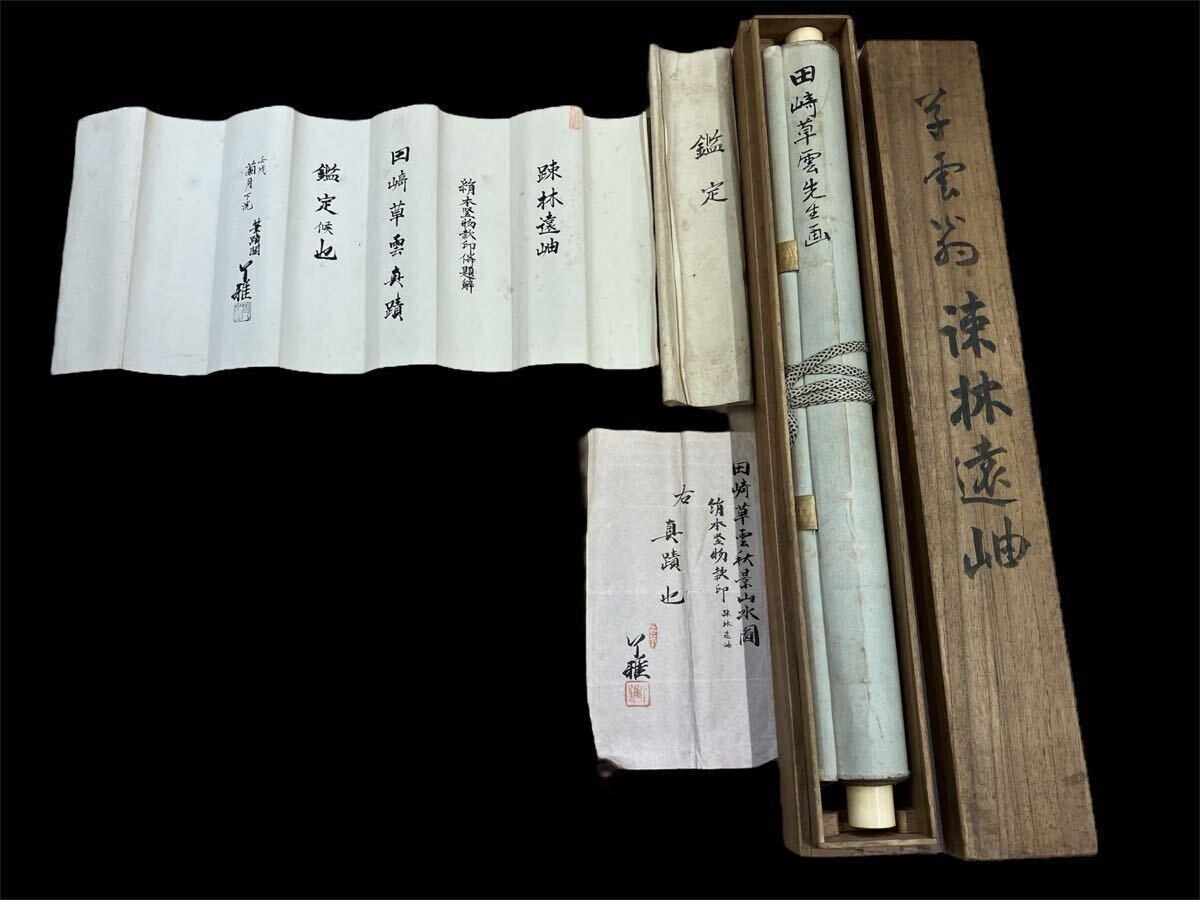 草雲翁 疎林遠岫
田﨑草雲先生画
鑑定
疎林遠岫
絹本竪物款印併題解
田﨑草雲真蹟
鑑定候也
壬戌
蘭月下浣
了雅
田﨑草雲秋景山水圖
絹本竪物款印 疎林遠岫
右真蹟也
了雅